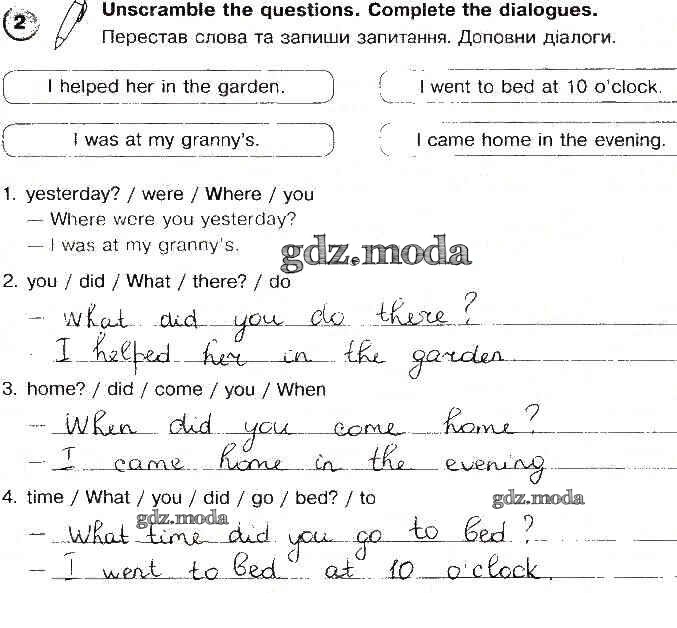 2 Unscramble the questions. Complete the dialogues.
Перестав слова та запиши запитання. Доповни діалоги.
I helped her in the garden. I went to bed at 10 o'clock.
I was at my granny's. I came home in the evening.
1. yesterday? / were / Where / you
– Where were you yesterday?
– I was at my granny's.
gdz.moda
2. you / did / What / there? / do
– What did you do there?
I helped her in the garden
3. home? / did / come / you / When
– When did you come home?
– I came home in the evening
4. time / What / you / did / go / bed? / to
gdz.moda gdz.moda
– What time did you go to bed?
– I went to bed at 10 o'clock.